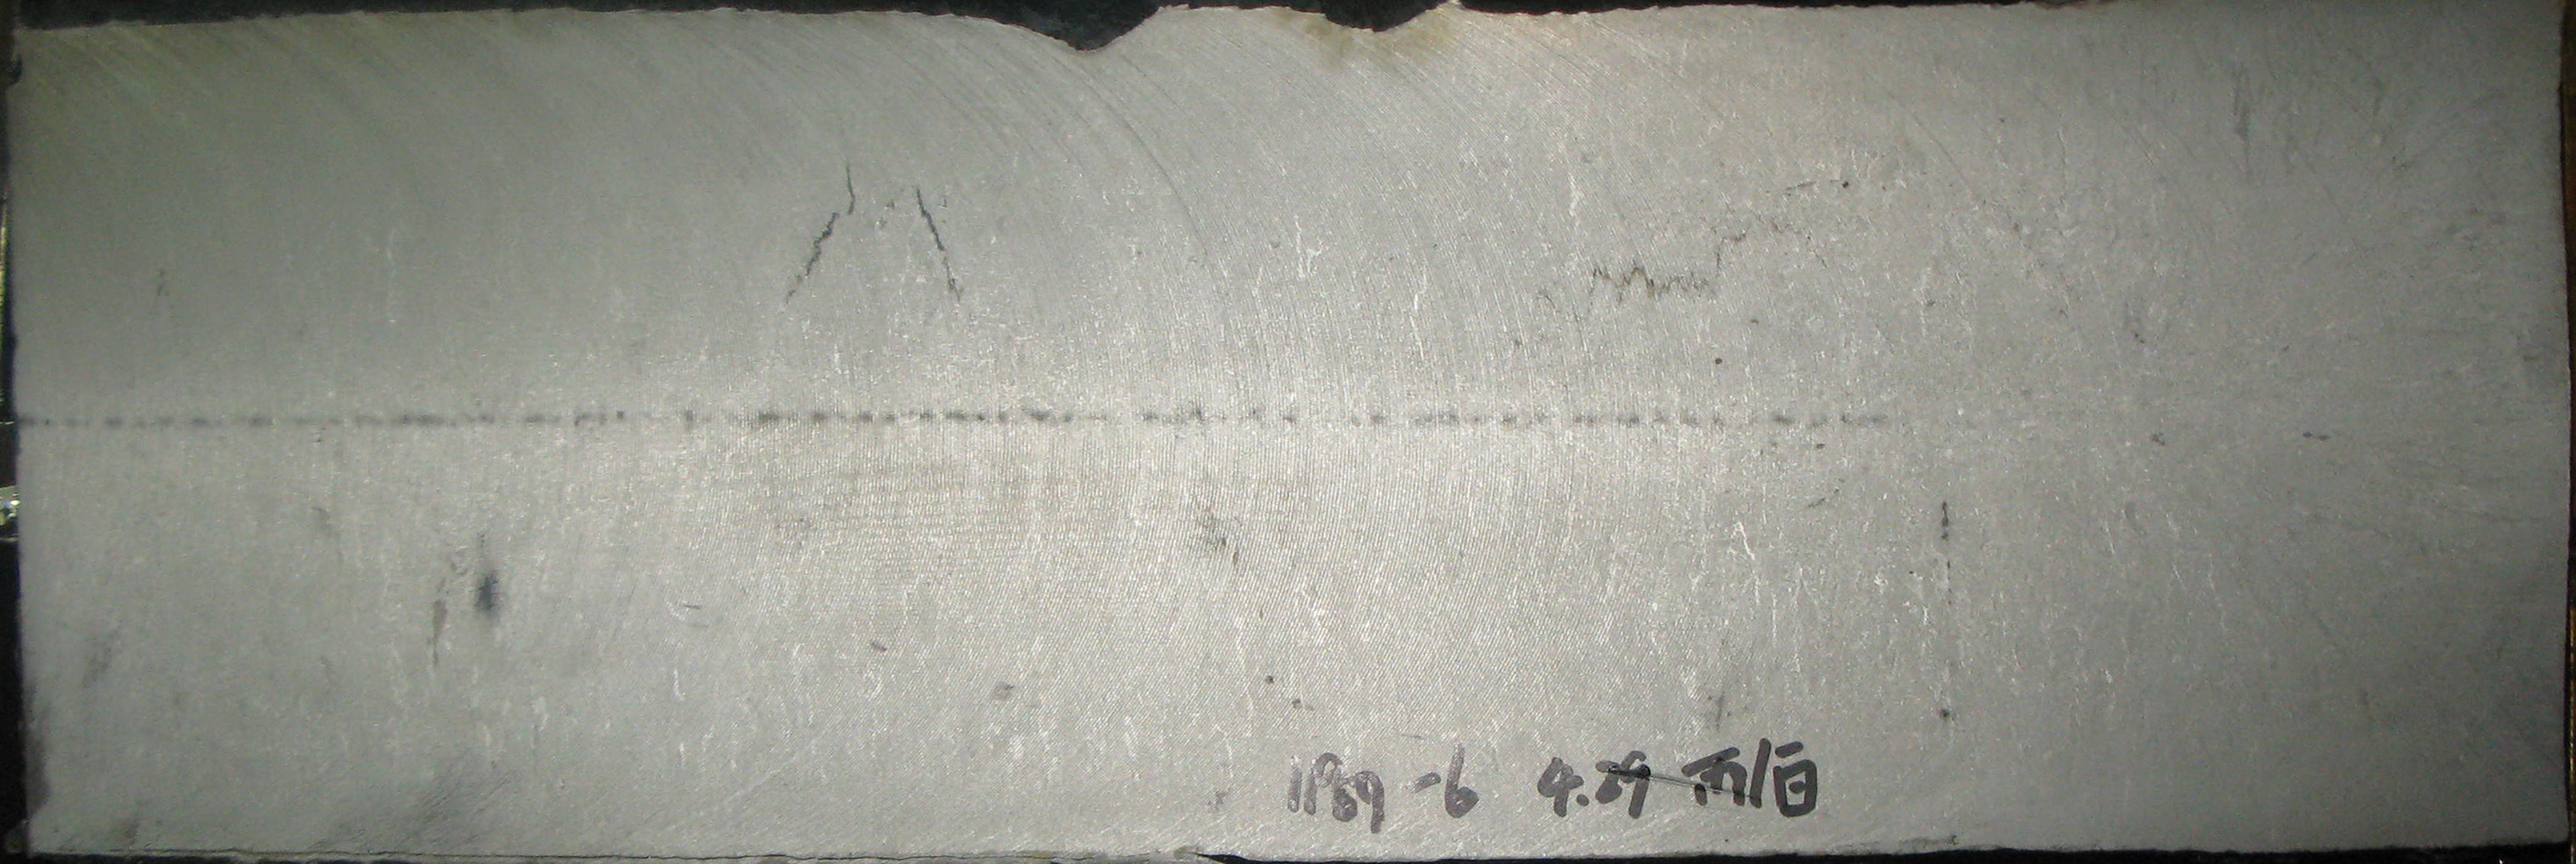 11989-6 4.29 丙/白